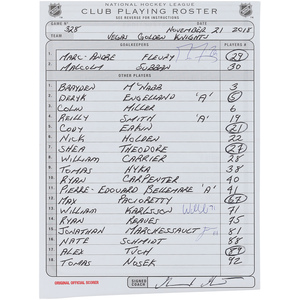 NATIONAL HOCKEY LEAGUE
CLUB PLAYING ROSTER
SEE REVERSE FOR INSTRUCTIONS
GAME Nº 325 DATE NOVEMBER 21 2018
TEAM VEGAS GOLDEN KNIGHTS
GOALKEEPERS PLAYER #
1. MARC-ANDRE FLEURY 29
2. MALCOLM SUBBAN 30
OTHER PLAYERS
1. BRAYDEN McNABB 3
2. DERYK ENGELLAND 'A' 5
3. COLIN MILLER 6
4. REILLY SMITH 'A' 19
5. CODY EAKIN 21
6. NICK HOLDEN 22
7. SHEA THEODORE 27
8. WILLIAM CARRIER 28
9. TOMAS HYKA 38
10. RYAN CARPENTER 40
11. PIERRE-EDOUARD BELLEMARE 'A' 41
12. MAX PACIORETTY 67
13. WILLIAM KARLSSON 71
14. RYAN REAVES 75
15. JONATHAN MARCHESSAULT 81
16. NATE SCHMIDT 88
17. ALEX TUCH 89
18. TOMAS NOSEK 92
ORIGINAL OFFICIAL RECORDS
SIGNED COACH